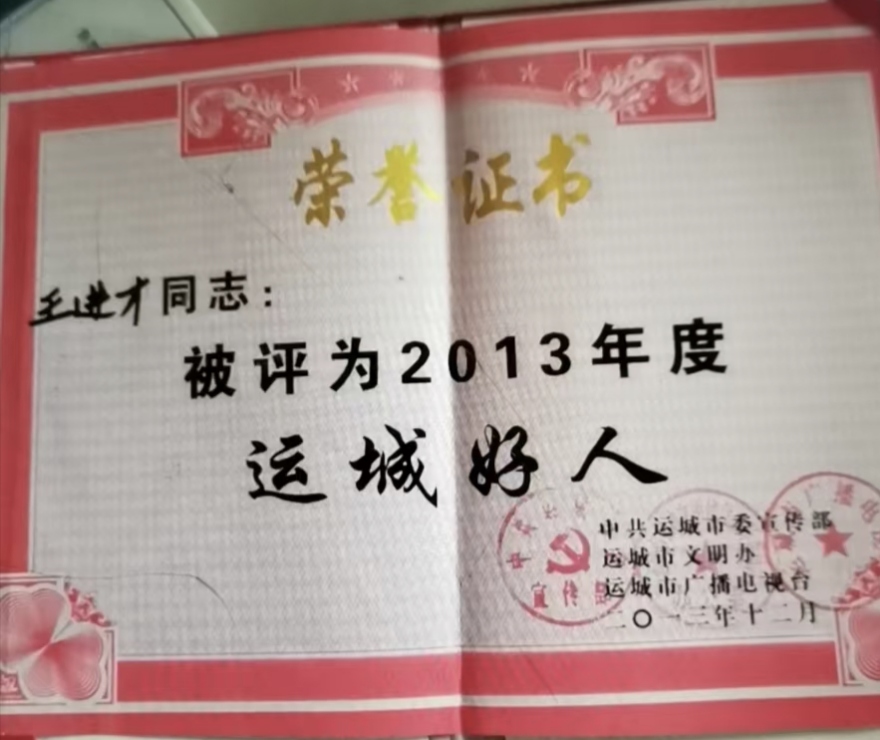 荣誉证书
王进才同志：
被评为2013年度
运城好人
中共运城市委宣传部
运城市文明办
运城市广播电视台
二〇一三年十二月